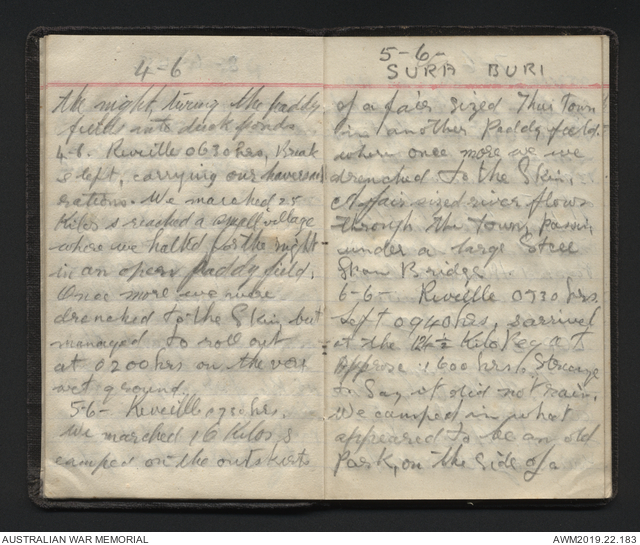 4-6
the night, turing the paddy
fields into duck ponds.
4-6. Reveille 0630 hrs, Break
& left, carrying our haversac
rations. We marched 25
Kilos & reached a small village
where we halted for the night
in an open paddy field.
Once more we were
drenched to the Skin, but
managed to roll out
at 0200 hrs on the very
wet ground.
5-6- Reveille 0730 hrs.
We marched 16 Kilos &
camped on the outskirts
5-6-
SURA BURI
of a fair sized Thai Town
in another Paddy field.
where once more we were
drenched to the Skin.
A fair sized river flows
through the town, passing
under a large Steel
Span Bridge
6-6- Reveille 0730 hrs.
Left 0940 hrs, & arrived
at the 124½ Kilo Peg at
Approx 1600 hrs. Strange
to Say it did not rain.
We camped in what
appeared to be an old
Park, on the side of a
AUSTRALIAN WAR MEMORIAL
AWM2019.22.183